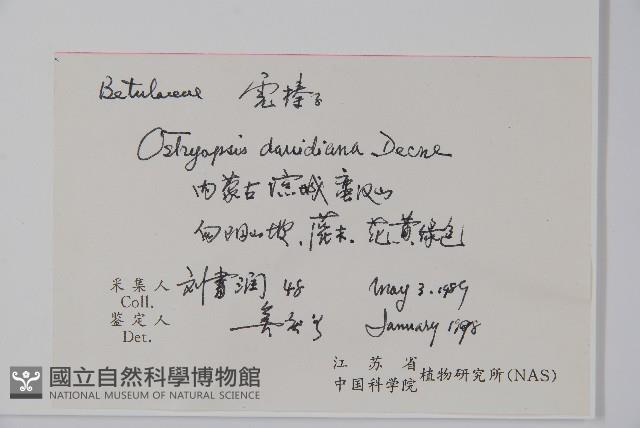 Betulaceae 虎榛子
Ostryopsis davidiana Decne
内蒙古凉城蛮汉山
向阳山坡.灌木.花黄绿色
采集人 刘書润 48 May 3. 1989
Coll.
鉴定人 January 1998
Det.
江苏省
中国科学院 植物研究所(NAS)
國立自然科學博物館
NATIONAL MUSEUM OF NATURAL SCIENCE